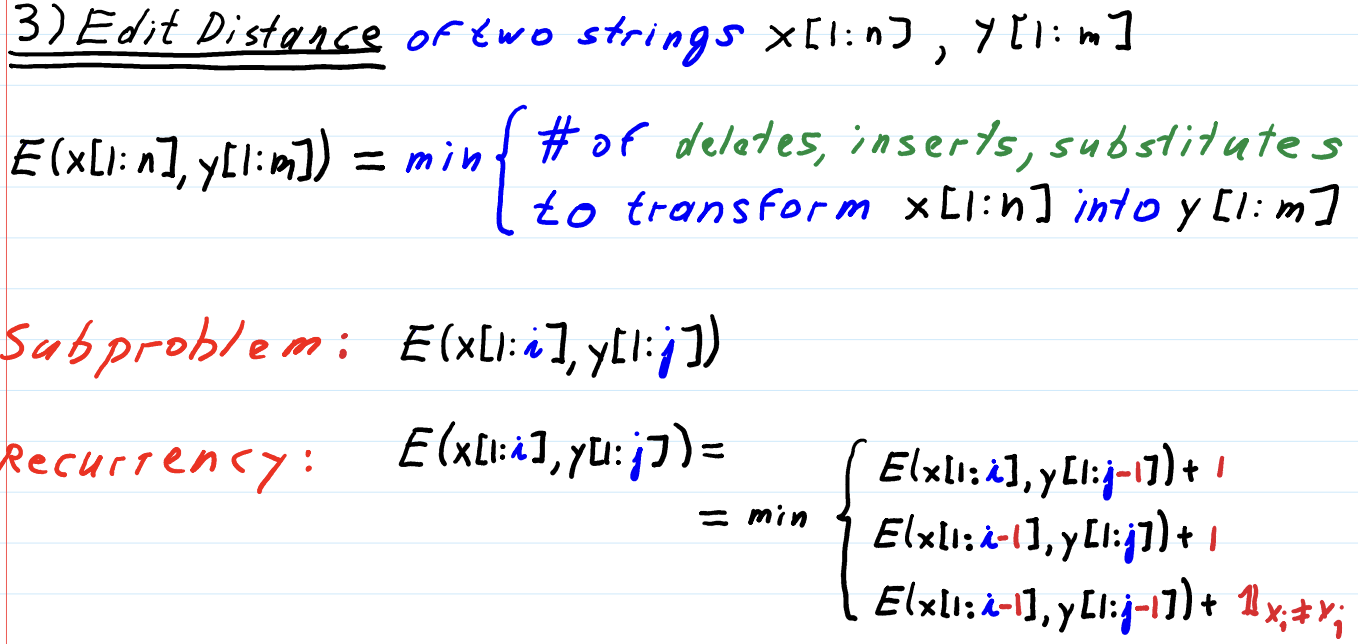 3) Edit Distance of two strings x[1:n], y[1:m]
E(x[1:n], y[1:m]) = min { # of deletes, inserts, substitutes
to transform x[1:n] into y[1:m]
Subproblem: E(x[1:i], y[1:j])
Recurrency: E(x[1:i], y[1:j]) =
= min { E(x[1:i], y[1:j-1]) + 1
E(x[1:i-1], y[1:j]) + 1
E(x[1:i-1], y[1:j-1]) + 𝟙 x_i ≠ y_j